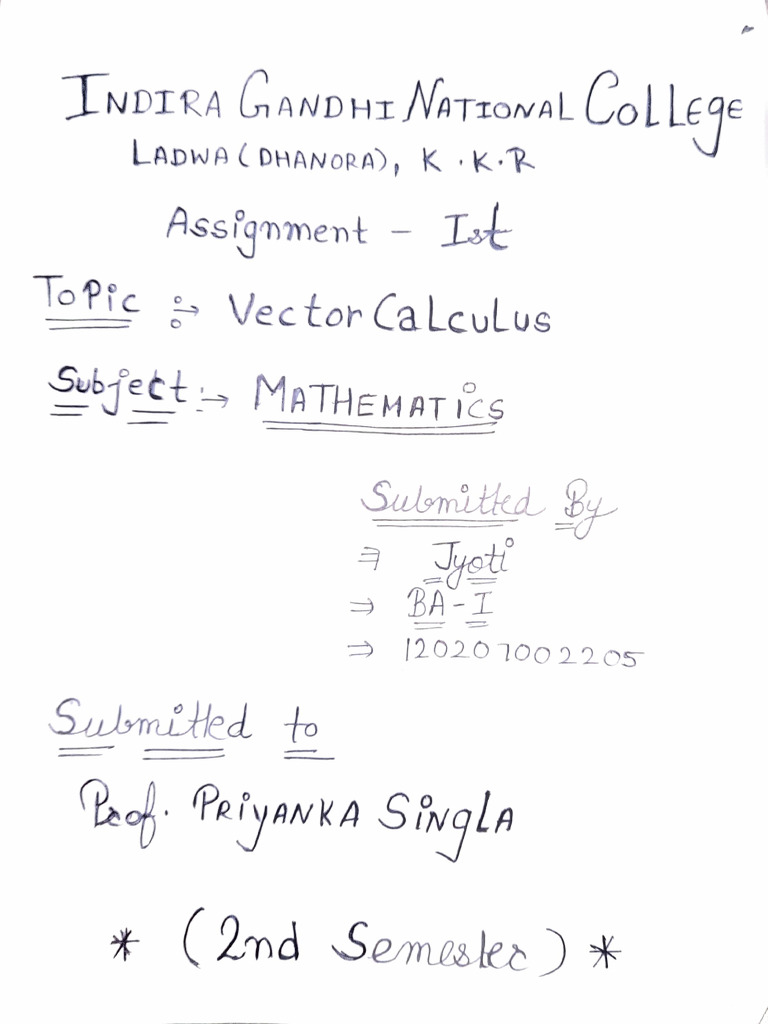 INDIRA GANDHI NATIONAL COLLEGE
LADWA (DHANORA), K.K.R
Assignment - Ist
Topic :→ Vector Calculus
Subject :→ MATHEMATICS
Submitted By
⇒ Jyoti
⇒ BA - I
⇒ 120207002205
Submitted to
Prof. PRIYANKA SINGLA
* (2nd Semester) *